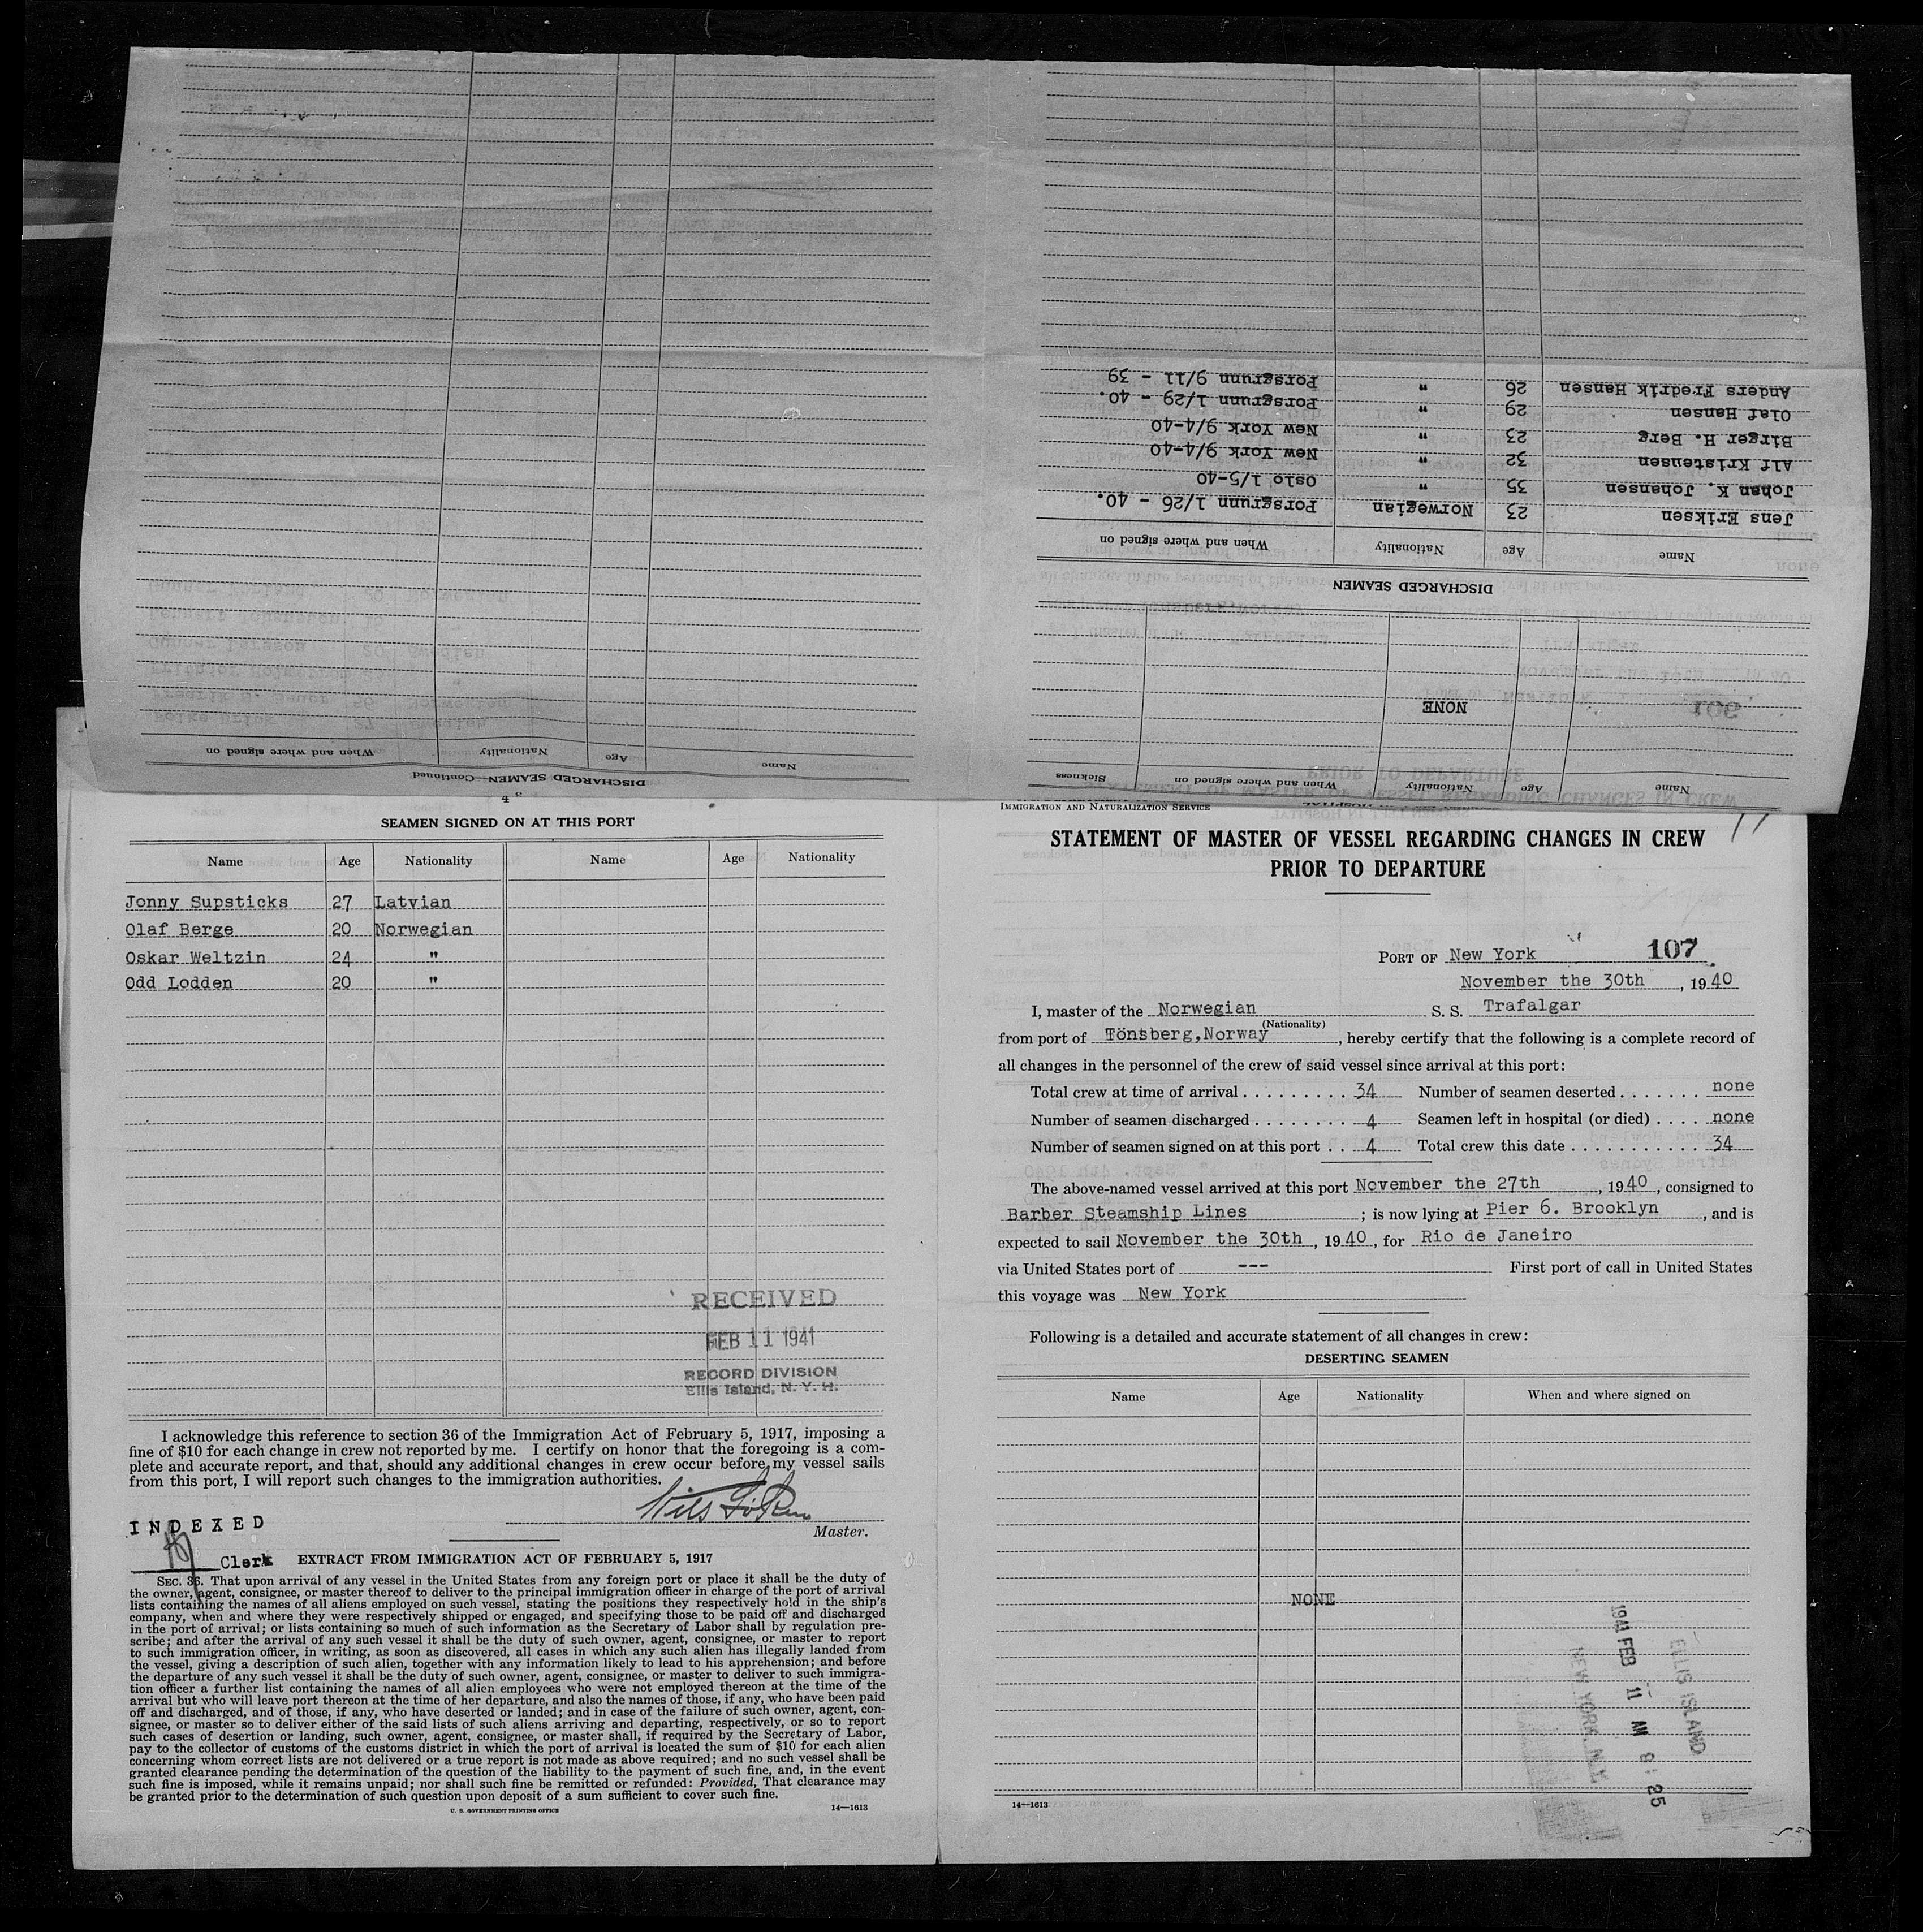 DISCHARGED SEAMEN—Continued
Name Age Nationality When and where signed on
Name Age Nationality When and where signed on Sickness
NONE
DISCHARGED SEAMEN
Name Age Nationality When and where signed on
Jens Eriksen 23 Norwegian Porsgrunn 1/26 - 40.
Johan K. Johansen 35 " Oslo 1/5-40
Alf Kristensen 32 " New York 9/4-40
Birger H. Berg 23 " New York 9/4-40
Olaf Hansen 29 " Porsgrunn 1/29 - 40.
Anders Fredrik Hansen 26 " Porsgrunn 9/11 - 39
4
SEAMEN SIGNED ON AT THIS PORT
Name Age Nationality Name Age Nationality
Jonny Supsticks 27 Latvian
Olaf Berge 20 Norwegian
Oskar Weltzin 24 "
Odd Lodden 20 "
RECEIVED
FEB 11 1941
RECORD DIVISION
Ellis Island, N. Y. H.
I acknowledge this reference to section 36 of the Immigration Act of February 5, 1917, imposing a
fine of $10 for each change in crew not reported by me. I certify on honor that the foregoing is a com-
plete and accurate report, and that, should any additional changes in crew occur before my vessel sails
from this port, I will report such changes to the immigration authorities.
Nils
Master.
INDEXED
Clerk
EXTRACT FROM IMMIGRATION ACT OF FEBRUARY 5, 1917
SEC. 36. That upon arrival of any vessel in the United States from any foreign port or place it shall be the duty of
the owner, agent, consignee, or master thereof to deliver to the principal immigration officer in charge of the port of arrival
lists containing the names of all aliens employed on such vessel, stating the positions they respectively hold in the ship's
company, when and where they were respectively shipped or engaged, and specifying those to be paid off and discharged
in the port of arrival; or lists containing so much of such information as the Secretary of Labor shall by regulation pre-
scribe; and after the arrival of any such vessel it shall be the duty of such owner, agent, consignee, or master to report
to such immigration officer, in writing, as soon as discovered, all cases in which any such alien has illegally landed from
the vessel, giving a description of such alien, together with any information likely to lead to his apprehension; and before
the departure of any such vessel it shall be the duty of such owner, agent, consignee, or master to deliver to such immigra-
tion officer a further list containing the names of all alien employees who were not employed thereon at the time of the
arrival but who will leave port thereon at the time of her departure, and also the names of those, if any, who have been paid
off and discharged, and of those, if any, who have deserted or landed; and in case of the failure of such owner, agent, con-
signee, or master so to deliver either of the said lists of such aliens arriving and departing, respectively, or so to report
such cases of desertion or landing, such owner, agent, consignee, or master shall, if required by the Secretary of Labor,
pay to the collector of customs of the customs district in which the port of arrival is located the sum of $10 for each alien
concerning whom correct lists are not delivered or a true report is not made as above required; and no such vessel shall be
granted clearance pending the determination of the question of the liability to the payment of such fine, and, in the event
such fine is imposed, while it remains unpaid; nor shall such fine be remitted or refunded: Provided, That clearance may
be granted prior to the determination of such question upon deposit of a sum sufficient to cover such fine.
U. S. GOVERNMENT PRINTING OFFICE 14—1613
IMMIGRATION AND NATURALIZATION SERVICE
STATEMENT OF MASTER OF VESSEL REGARDING CHANGES IN CREW
PRIOR TO DEPARTURE
PORT OF New York 107
November the 30th , 1940
I, master of the Norwegian S. S. Trafalgar
(Nationality)
from port of Tönsberg,Norway , hereby certify that the following is a complete record of
all changes in the personnel of the crew of said vessel since arrival at this port:
Total crew at time of arrival 34 Number of seamen deserted none
Number of seamen discharged 4 Seamen left in hospital (or died) none
Number of seamen signed on at this port 4 Total crew this date 34
The above-named vessel arrived at this port November the 27th , 1940 , consigned to
Barber Steamship Lines ; is now lying at Pier 6. Brooklyn , and is
expected to sail November the 30th , 1940 , for Rio de Janeiro
via United States port of --- First port of call in United States
this voyage was New York
Following is a detailed and accurate statement of all changes in crew:
DESERTING SEAMEN
Name Age Nationality When and where signed on
NONE
ELLIS ISLAND
1941 FEB 11 AM 8: 25
NEW YORK, N.Y.
14—1613